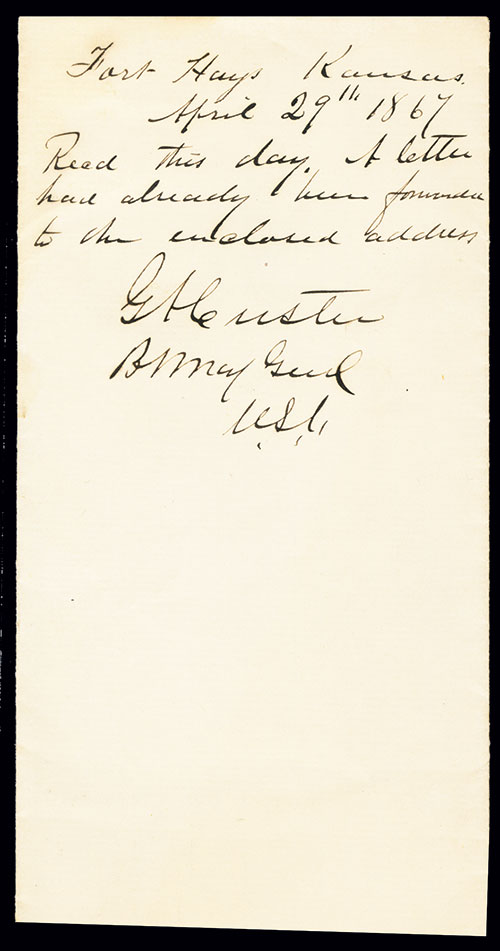 Fort Hays Kansas.
April 29th 1867
Read this day. A letter
had already been forwarded
to the enclosed address
GACuster
Bt Maj Genl
U.S.A.